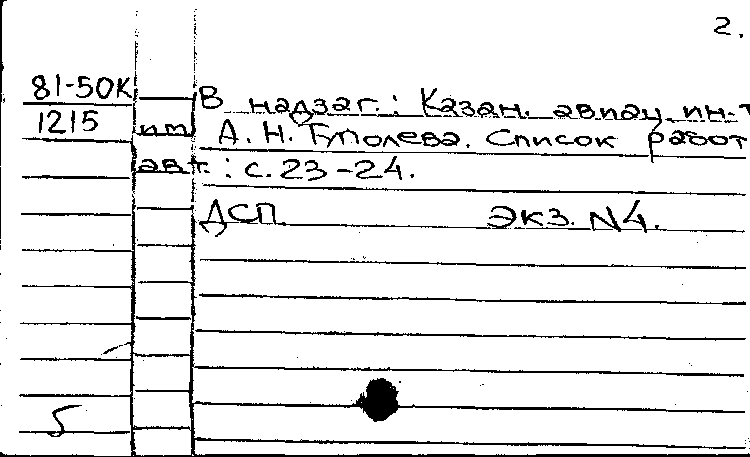 2.
81-50К
1215
В надзаг.: Казан. авиац. ин-т
им. А. Н. Туполева. Список работ
авт.: с. 23-24.
ДСП Экз. N4.
5